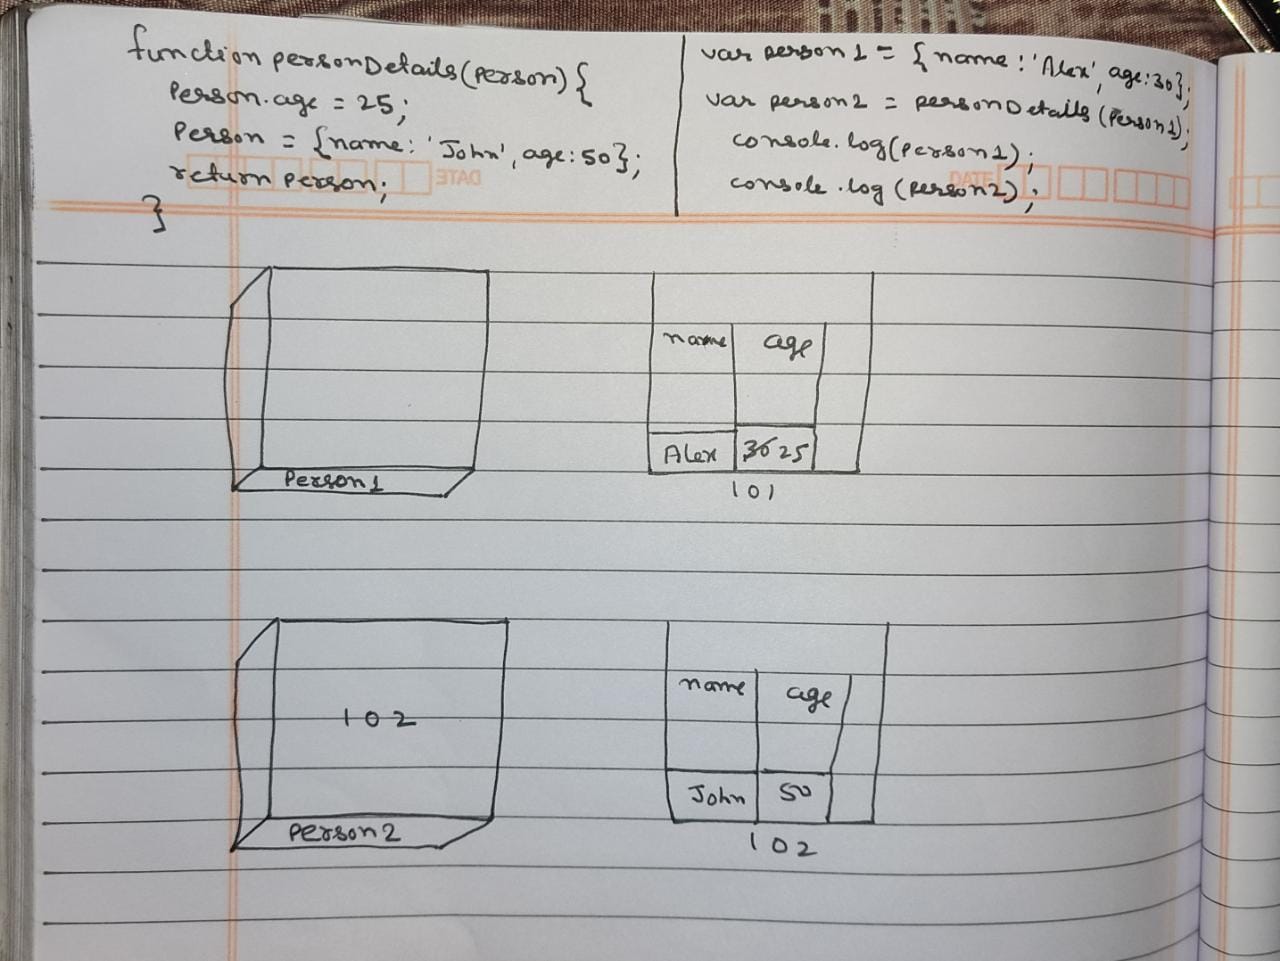 function personDetails(person){
Person.age = 25;
Person = {name: 'John', age:50};
return person;
}
var person1 = {name:'Alex', age:30};
var person2 = personDetails(Person1);
console.log(person1);
console.log(person2);
DATE
DATE
name age
Alex 30 25
Person1
101
102
name age
John 50
Person2
102